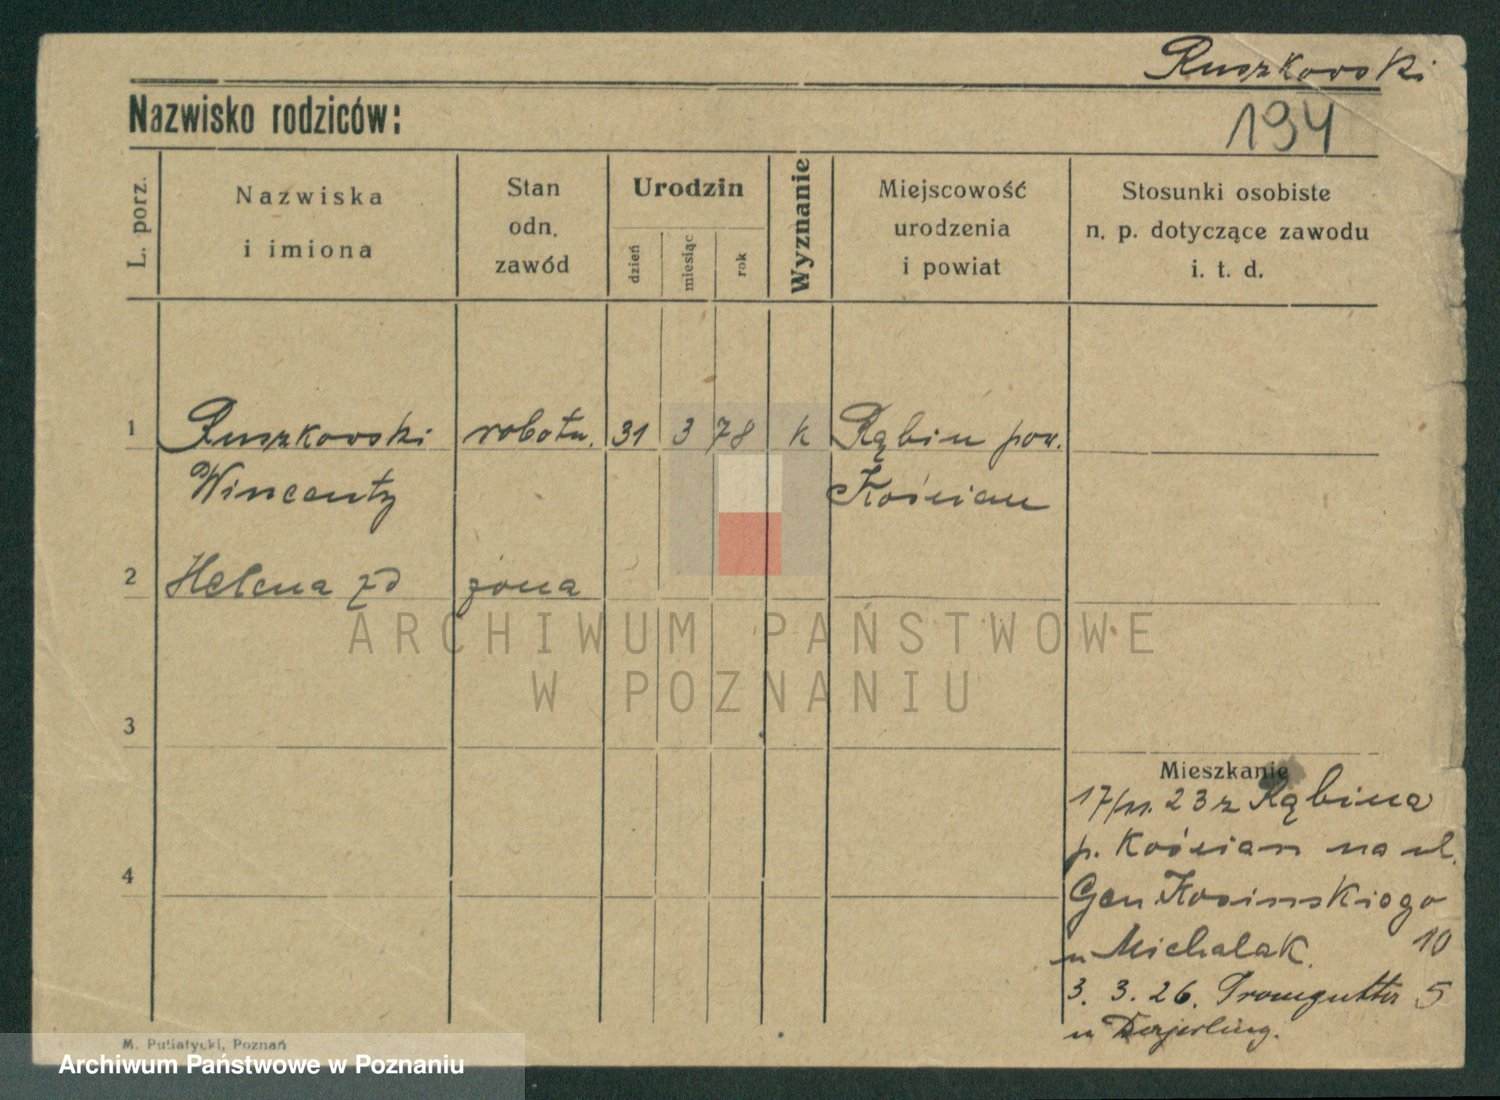 Ruszkowski
194
Nazwisko rodziców:
L. porz.
Nazwiska
i imiona
Stan
odn.
zawód
Urodzin
dzień
miesiąc
rok
Wyznanie
Miejscowość
urodzenia
i powiat
Stosunki osobiste
n. p. dotyczące zawodu
i. t. d.
1 Ruszkowski robotn. 31 3 78 k Rąbin pow.
Wincenty Kościan
2 Helena zd żona
3
4
Mieszkanie
17/11. 23 z Rąbina
p. Kościan na ul.
Gen. Kosinskiego
10
u Michalak.
3. 3. 26. 5
u
M. Putiatycki, Poznań
ARCHIWUM PAŃSTWOWE
W POZNANIU
Archiwum Państwowe w Poznaniu